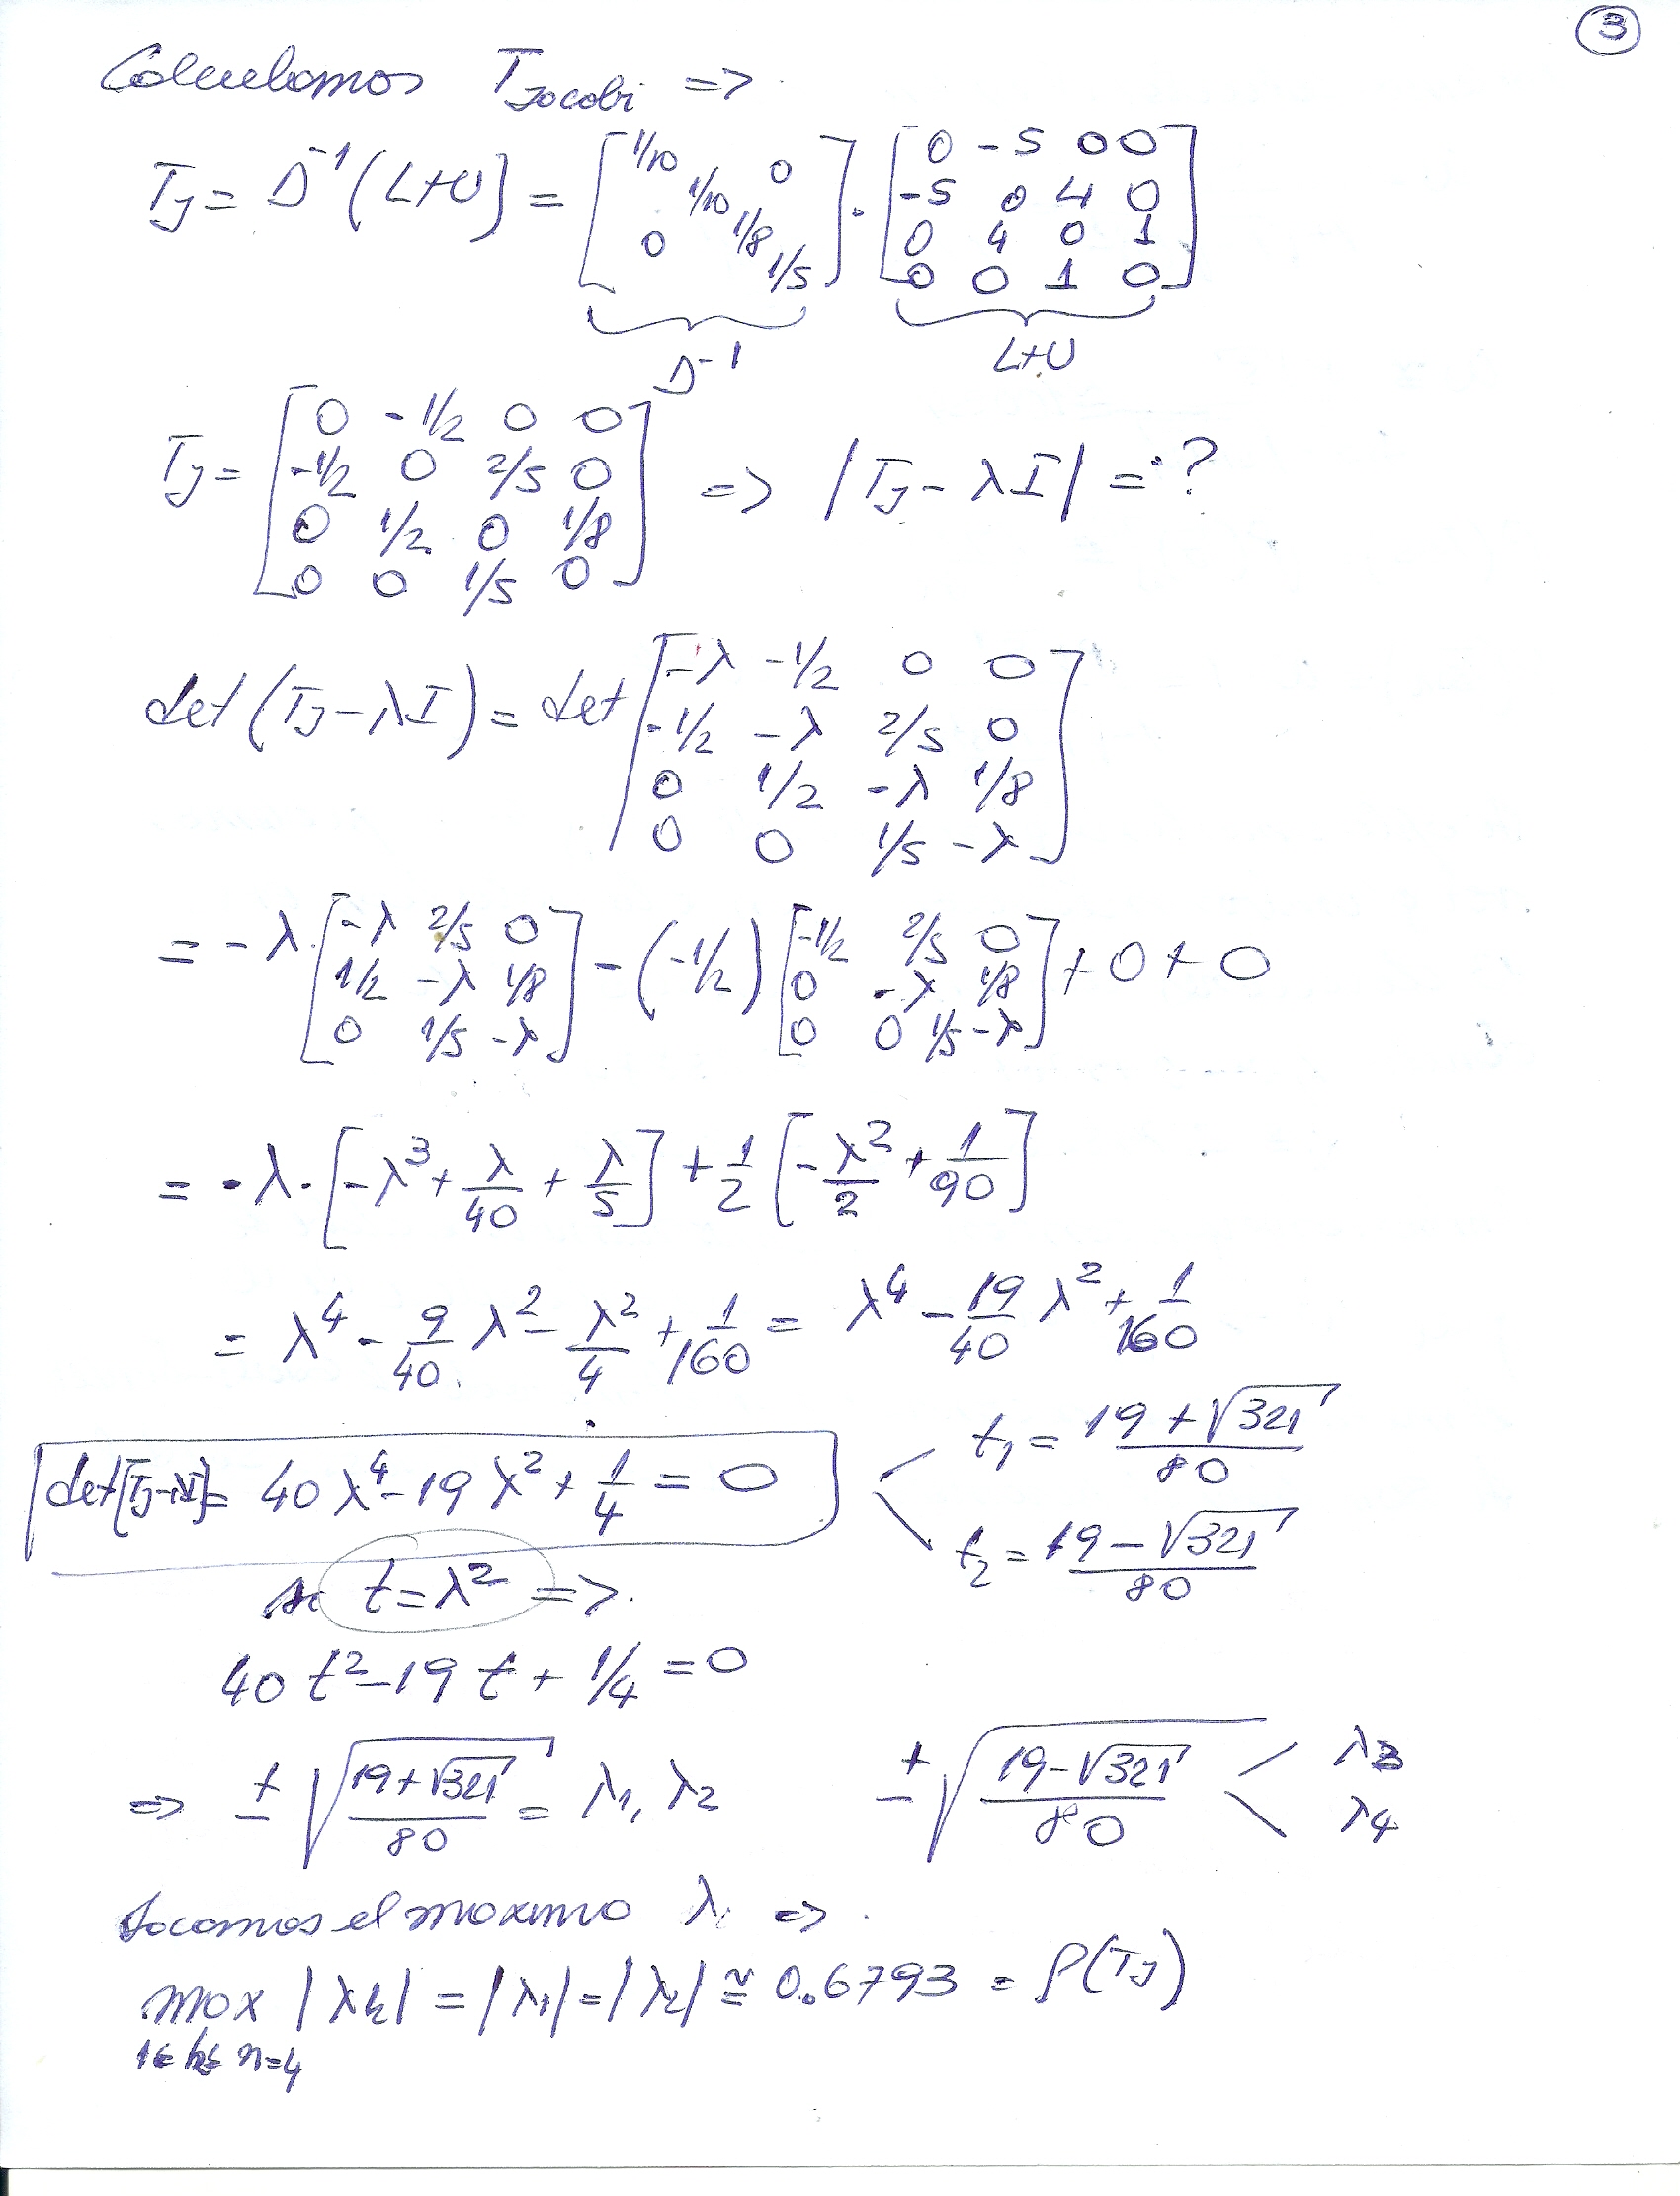 3
Calculamos T_Jacobi =>
T_J = D^-1 (L+U) = [1/10 1/10 1/8 1/5 0 0] · [0 -5 0 0; -5 0 4 0; 0 4 0 1; 0 0 1 0]
D^-1 L+U
T_J = [0 -1/2 0 0; -1/2 0 2/5 0; 0 1/2 0 1/8; 0 0 1/5 0] => |T_J - λI| = ?
det (T_J - λI) = det [-λ -1/2 0 0; -1/2 -λ 2/5 0; 0 1/2 -λ 1/8; 0 0 1/5 -λ]
= -λ · [-λ 2/5 0; 1/2 -λ 1/8; 0 1/5 -λ] - (-1/2) [-1/2 2/5 0; 0 -λ 1/8; 0 0 1/5 -λ] + 0 + 0
= -λ · [-λ^3 + λ/40 + λ/5] + 1/2 [-λ^2/2 + 1/90]
= λ^4 - 9/40 λ^2 - λ^2/4 + 1/160 = λ^4 - 19/40 λ^2 + 1/160
det[T_J-λI] = 40λ^4 - 19λ^2 + 1/4 = 0
t_1 = (19 + √321)/80
t_2 = (19 - √321)/80
si t = λ^2 =>
40 t^2 - 19 t + 1/4 = 0
=> ± √((19+√321)/80) = λ1, λ2 ± √((19-√321)/80) λ3 λ4
Sacamos el maximo λ =>
max |λk| = |λ1| = |λ2| ≅ 0.6793 = ρ(T_J)
1≤k≤n=4